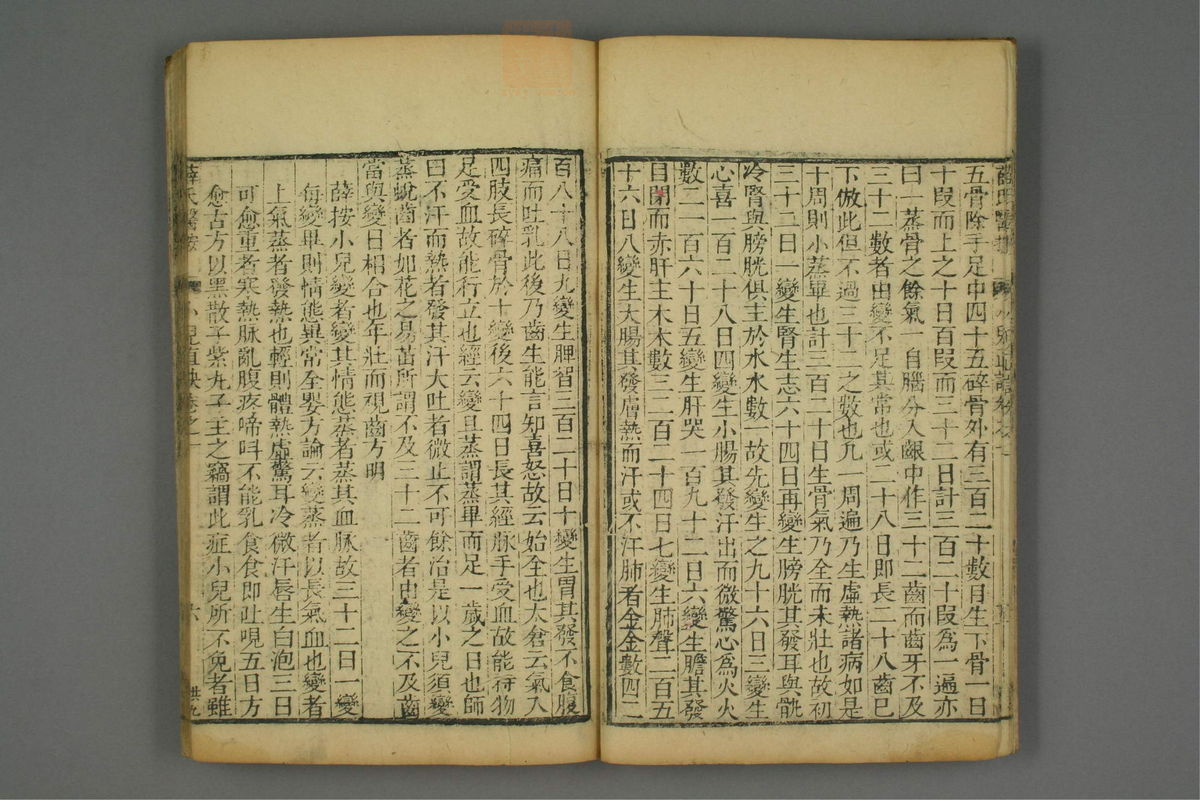 五骨除手足中四十五碎骨外有三百二十數月生下骨一日
十段而上之十日百段而三十二日計三百二十段爲一遍亦
曰一蒸骨之餘氣自腦分入齦中作三十二齒而齒牙不及
三十二數者由變不足其常也或二十八日即長二十八齒已
下倣此但不過三十二之數也凡一周遍乃生虛熱諸病如是
十周則小蒸畢也計三百二十日生骨氣乃全而未壯也故初
三十二日一變生腎生志六十四日再變生膀胱其發耳與骫
冷腎與膀胱俱主於水水數一故先變生之九十六日三變生
心喜一百二十八日四變生小腸其發汗出而微驚心爲火火
數二一百六十日五變生肝哭一百九十二日六變生膽其發
目閉而赤肝主木木數三二百二十四日七變生肺聲二百五
十六日八變生大腸其發膚熱而汗或不汗肺者金金數四二
百八十八日九變生脾智三百二十日十變生胃其發不食腹
痛而吐乳此後乃齒生能言知喜怒故云始全也太倉云氣入
四肢長碎骨於十變後六十四日長其經脉手受血故能持物
足受血故能行立也經云變且蒸謂蒸畢而足一歲之日也師
曰不汗而熱者發其汗大吐者微止不可餘治是以小兒須變
蒸蛻齒者如花之易苗所謂不及三十二齒者由變之不及齒
當與變日相合也年壯而視齒方明
薛按小兒變者變其情態蒸者蒸其血脉故三十二日一變
每變畢則情態異常全嬰方論云變蒸者以長氣血也變者
上氣蒸者發熱也輕則體熱虛驚耳冷微汗唇生白泡三日
可愈重者寒熱脉亂腹疼啼呌不能乳食食即吐哯五日方
愈古方以黑散子紫丸子主之竊謂此症小兒所不免者雖
薛氏醫按 小兒直訣卷之一 六